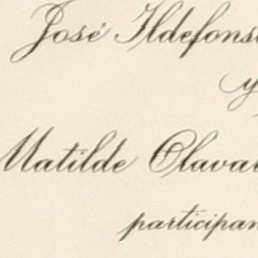 José Ildefons
y
Matilde Olava
participan